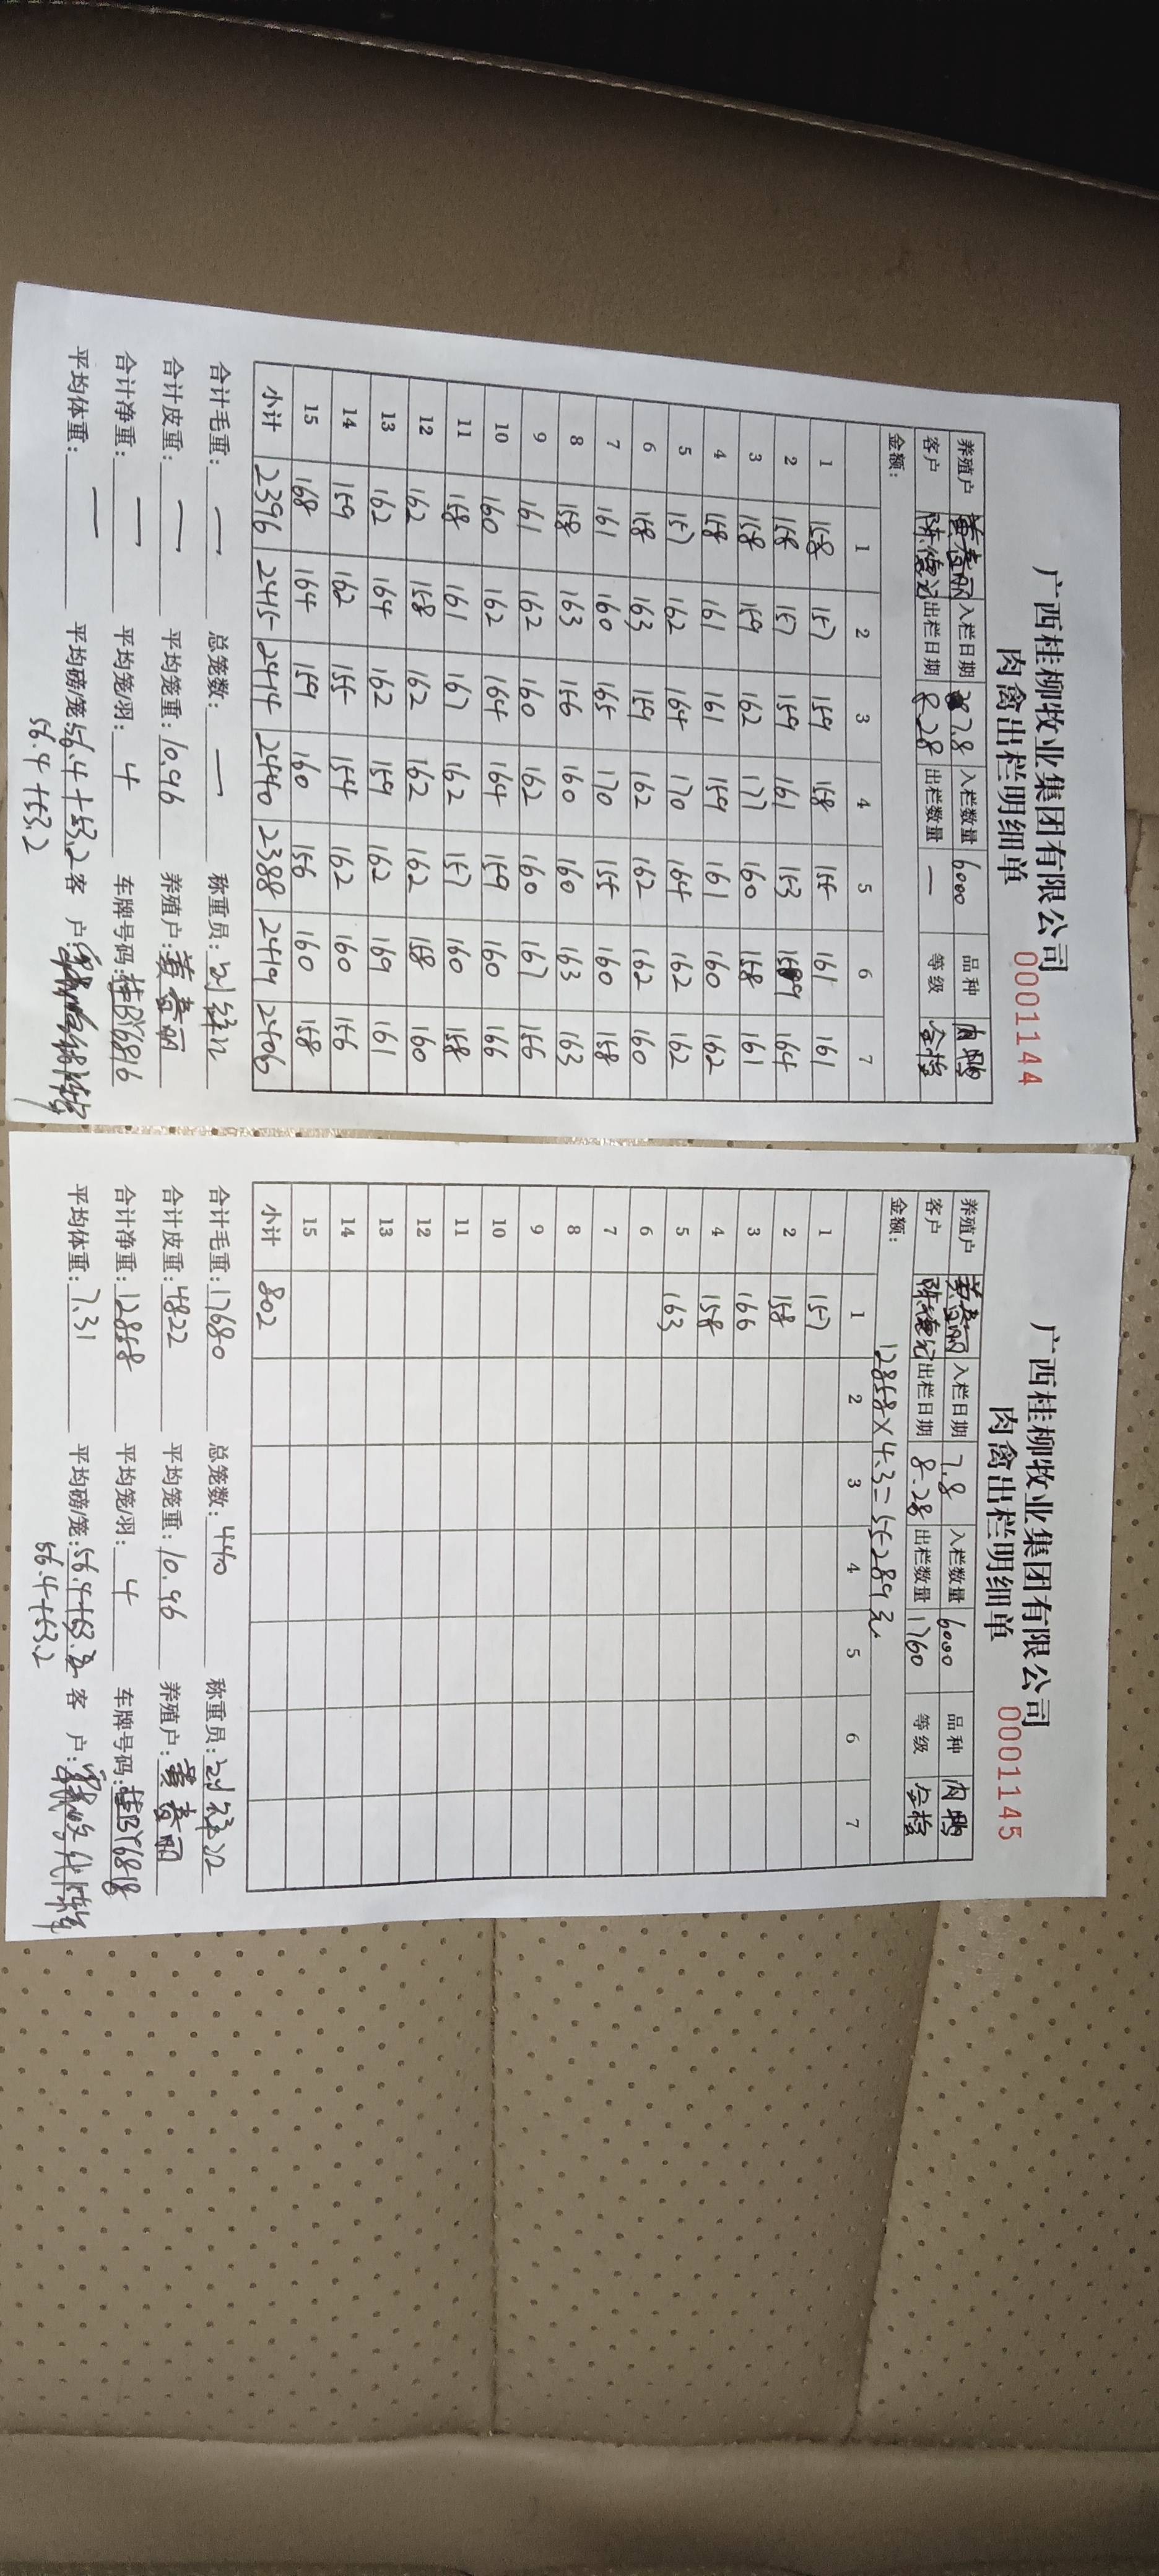 广西桂柳牧业集团有限公司
肉禽出栏明细单
0001144
养殖户 黄春丽 入栏日期 7.8 入栏数量 6000 品种 肉鸭
客户 出栏日期 8.28 出栏数量 — 等级 全检
金额:
1 2 3 4 5 6 7
1 158 157 159 158 155 161 161
2 158 157 159 161 153 159 164
3 158 159 162 177 160 158 161
4 158 161 161 159 161 160 162
5 157 162 164 170 164 162 162
6 158 163 159 162 162 162 160
7 161 160 165 170 155 160 158
8 158 163 156 160 160 163 163
9 161 162 160 162 160 167 156
10 160 162 164 164 159 160 166
11 158 161 167 162 157 160 158
12 162 158 162 162 162 158 160
13 162 164 162 159 162 169 161
14 159 162 155 154 162 160 156
15 168 164 159 160 156 160 158
小计 2396 2415 2414 2440 2388 2419 2406
合计毛重: — 总笼数: — 称重员:
合计皮重: — 平均笼重: 10.96 养殖户: 黄春丽
合计净重: — 平均笼/羽: 4 车牌号码:
平均体重: — 平均磅/笼: 56.4+53.2 客 户:
56.4+53.2
广西桂柳牧业集团有限公司
肉禽出栏明细单
0001145
养殖户 黄春丽 入栏日期 7.8 入栏数量 6000 品种 肉鸭
客户 出栏日期 8.28 出栏数量 1760 等级 全检
金额: 12858×4.3=55289元
1 2 3 4 5 6 7
1 157
2 158
3 166
4 158
5 163
6
7
8
9
10
11
12
13
14
15
小计 802
合计毛重: 17680 总笼数: 440 称重员:
合计皮重: 4822 平均笼重: 10.96 养殖户: 黄春丽
合计净重: 12858 平均笼/羽: 4 车牌号码:
平均体重: 7.31 平均磅/笼: 客 户:
56.4+53.2